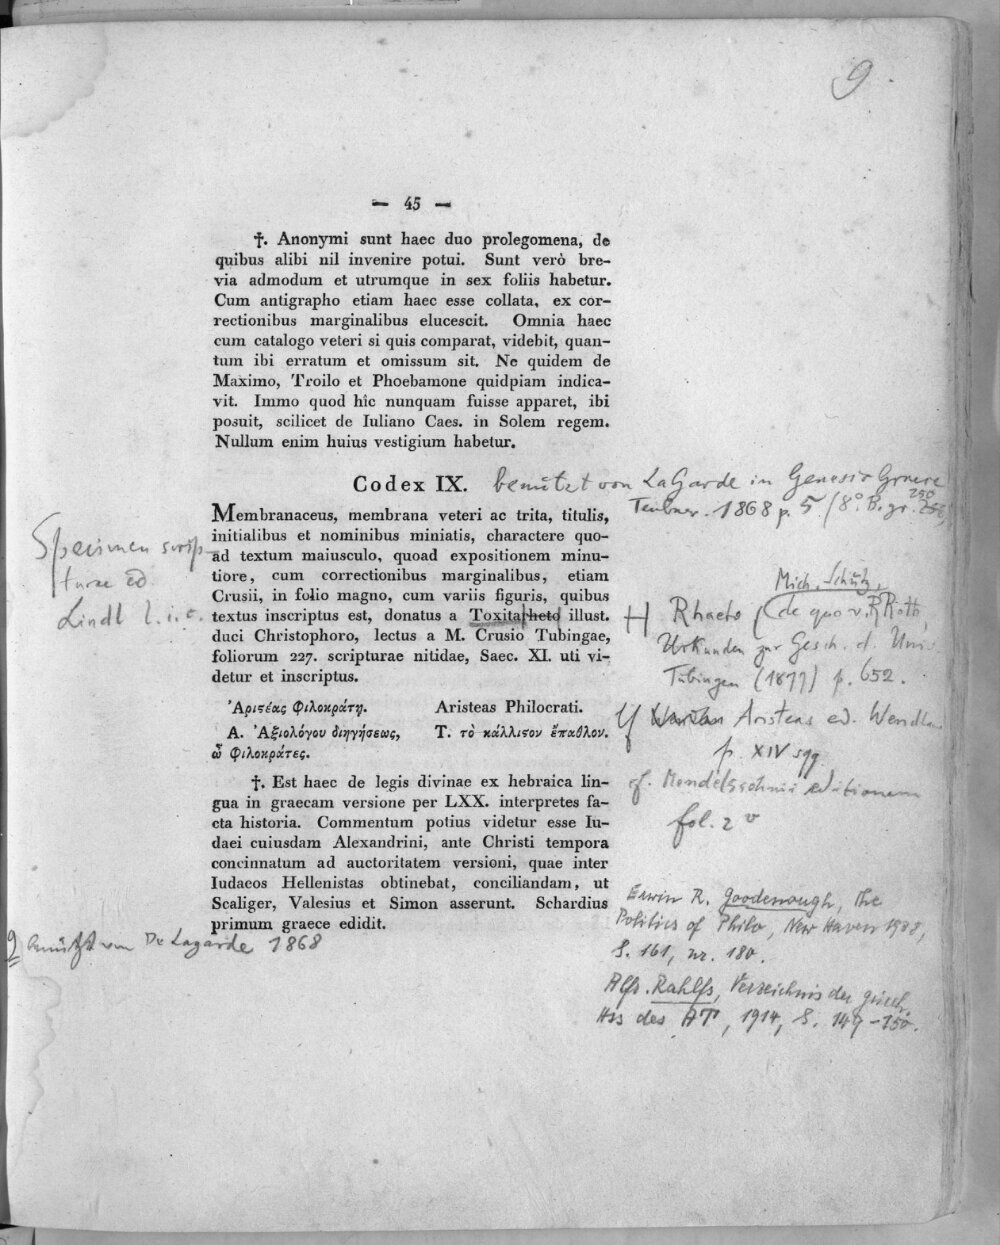 9
— 45 —
†. Anonymi sunt haec duo prolegomena, de
quibus alibi nil invenire potui. Sunt verò bre-
via admodum et utrumque in sex foliis habetur.
Cum antigrapho etiam haec esse collata, ex cor-
rectionibus marginalibus elucescit. Omnia haec
cum catalogo veteri si quis comparat, videbit, quan-
tum ibi erratum et omissum sit. Ne quidem de
Maximo, Troilo et Phoebamone quidpiam indica-
vit. Immo quod hîc nunquam fuisse apparet, ibi
posuit, scilicet de Iuliano Caes. in Solem regem.
Nullum enim huius vestigium habetur.
Codex IX. benützt von LaGarde in Genesis Graece
Teubner. 1868 p. 5 (8° B. gr. 250
Membranaceus, membrana veteri ac trita, titulis,
initialibus et nominibus miniatis, charactere quo-
ad textum maiusculo, quoad expositionem minu-
tiore, cum correctionibus marginalibus, etiam
Crusii, in folio magno, cum variis figuris, quibus
textus inscriptus est, donatus a Toxitarheto illust.
duci Christophoro, lectus a M. Crusio Tubingae,
foliorum 227. scripturae nitidae, Saec. XI. uti vi-
detur et inscriptus.
Specimen scrip-
turae ed.
Lindl l. i. c.
Mich. Schütz,
Rhaeto (de quo v. R Roth,
Urkunden zur Gesch. d. Univ.
Tübingen (1877) p. 652.
Ἀριϛέας Φιλοκράτῃ. Aristeas Philocrati.
Α. Ἀξιολόγου διηγήσεως, Τ. τὸ κάλλιϛον ἔπαθλον.
ὦ Φιλοκράτες.
Aristeas ed. Wendland
p. XIV sqq.
cf. Mendelssohnii editionem
fol. 2 v
†. Est haec de legis divinae ex hebraica lin-
gua in graecam versione per LXX. interpretes fa-
cta historia. Commentum potius videtur esse Iu-
daei cuiusdam Alexandrini, ante Christi tempora
concinnatum ad auctoritatem versioni, quae inter
Iudaeos Hellenistas obtinebat, conciliandam, ut
Scaliger, Valesius et Simon asserunt. Schardius
primum graece edidit.
benützt von De Lagarde 1868
Erwin R. Goodenough, The
Politics of Philo, New Haven 1938,
S. 161, nr. 180.
Alfr. Rahlfs, Verzeichnis der griech.
Hss des AT, 1914, S. 149-150.